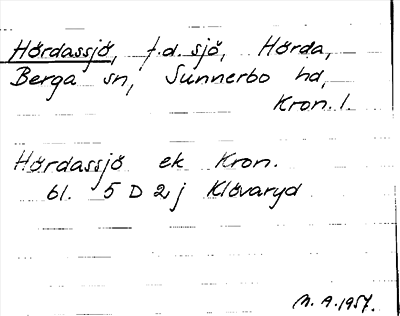 Hördassjö, f.d. sjö, Hörda,
Berga sn, Sunnerbo hd,
Kron. l.
Hördassjö ek Kron.
bl. 5 D 2 j Klövaryd
M. A. 1957.